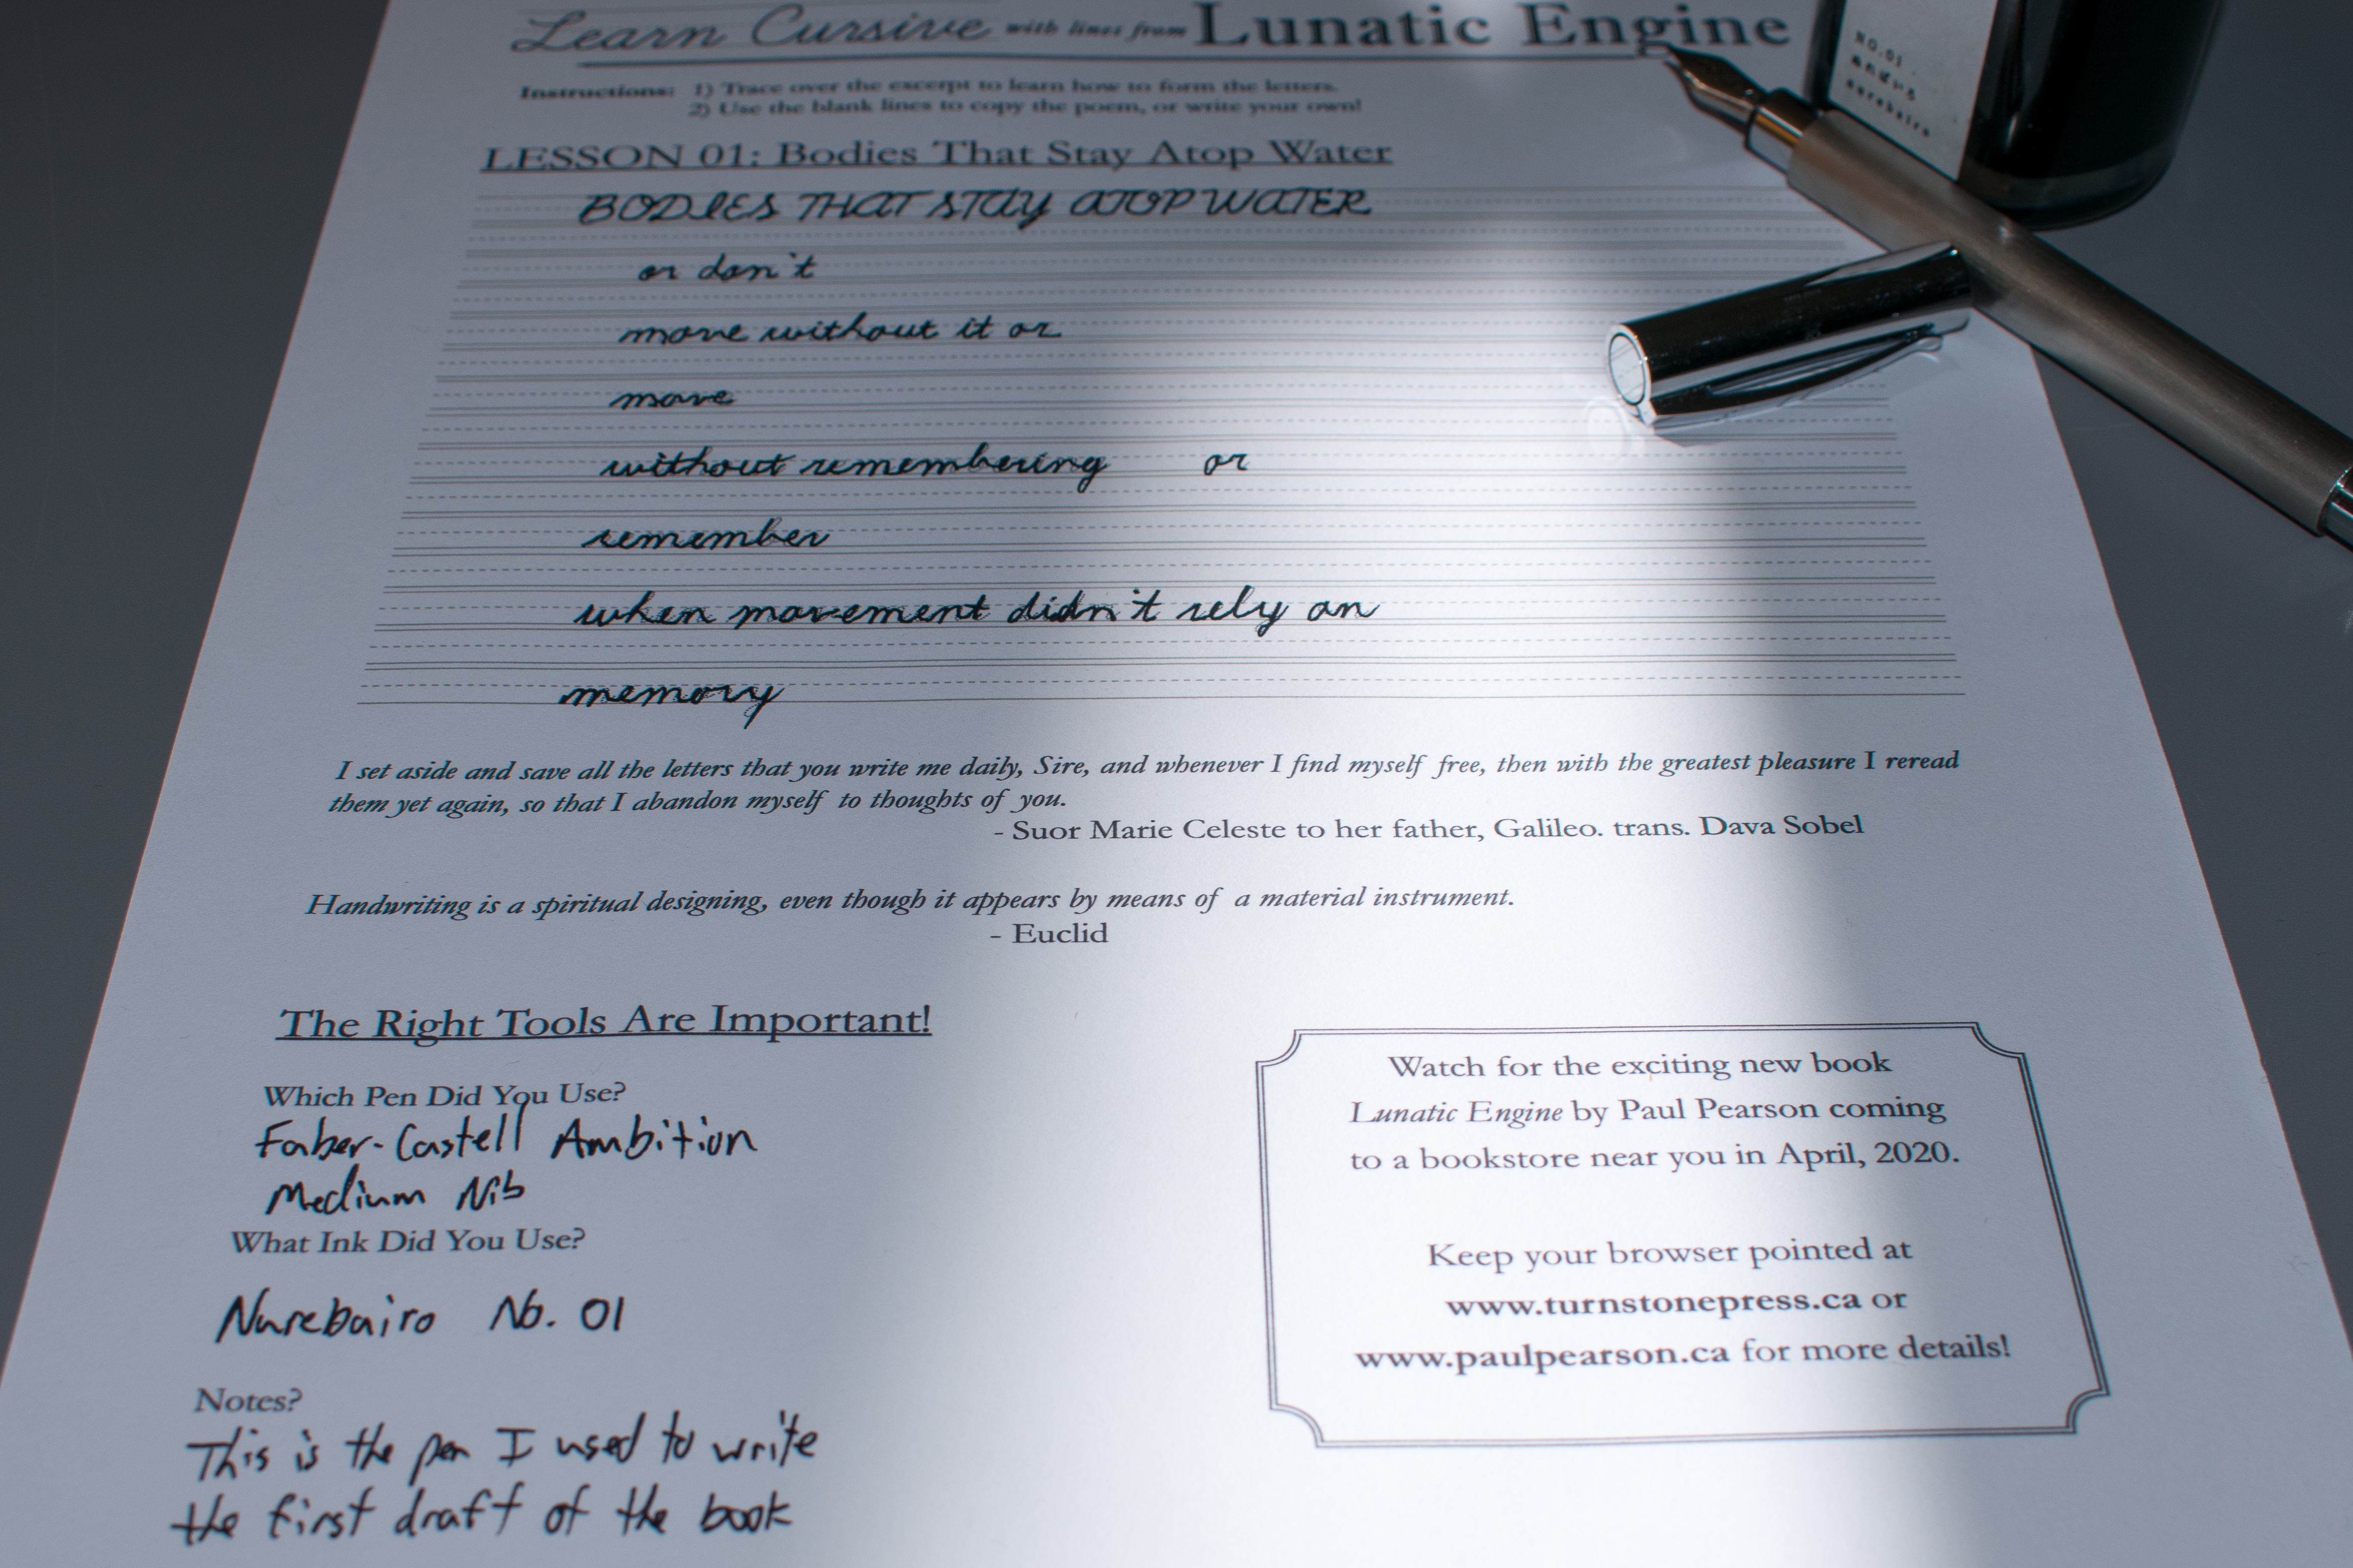 Learn Cursive with lines from Lunatic Engine
Instructions: 1) Trace over the excerpt to learn how to form the letters.
2) Use the blank lines to copy the poem, or write your own!
LESSON 01: Bodies That Stay Atop Water
BODIES THAT STAY ATOP WATER
or don't
move without it or
move
without remembering or
remember
when movement didn't rely on
memory
I set aside and save all the letters that you write me daily, Sire, and whenever I find myself free, then with the greatest pleasure I reread
them yet again, so that I abandon myself to thoughts of you.
- Suor Marie Celeste to her father, Galileo. trans. Dava Sobel
Handwriting is a spiritual designing, even though it appears by means of a material instrument.
- Euclid
The Right Tools Are Important!
Which Pen Did You Use?
Faber-Castell Ambition
Medium Nib
What Ink Did You Use?
Nurebairo No. 01
Notes?
This is the pen I used to write
the first draft of the book
Watch for the exciting new book
Lunatic Engine by Paul Pearson coming
to a bookstore near you in April, 2020.
Keep your browser pointed at
www.turnstonepress.ca or
www.paulpearson.ca for more details!
NO.01
nurebairo